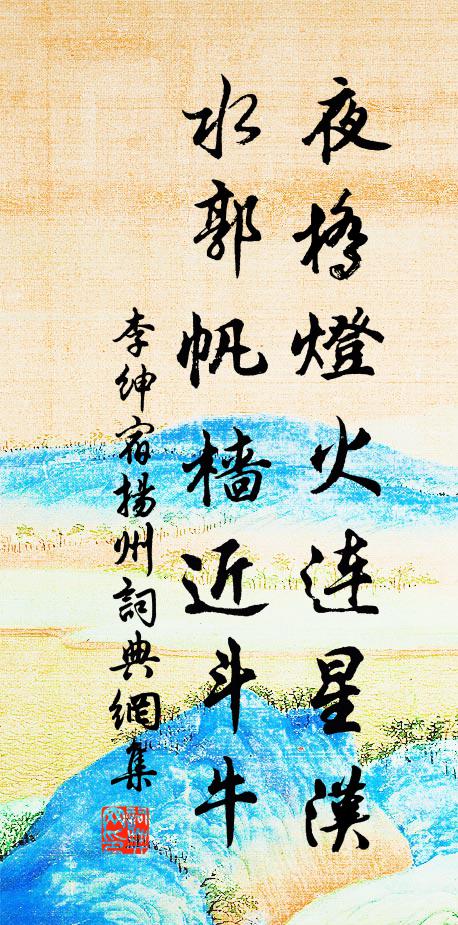 夜橋燈火連星漢
水郭帆檣近斗牛
李紳宿揚州詞典網集